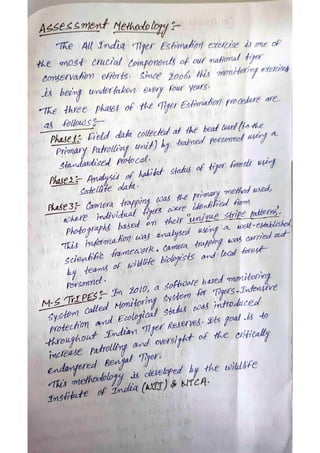 Assessment Methodology:-
The All India Tiger Estimation exercise is one of
the most crucial components of our national tiger
conservation efforts. Since 2006, this monitoring exercises
is being undertaken every four years.
The three phases of the Tiger Estimation procedure are
as follows:-
Phase 1:- Field data collected at the beat level (ie the
Primary Patrolling Unit) by trained personnel using a
Standardised Protocal.
Phase 2:- Analysis of habitat status of tiger forests using
Satellite data.
Phase 3:- Camera trapping was the primary method used,
where individual tigers were identified form
Photographs based on their "unique stripe pattern".
This information was analysed using a well-established
Scientific framework. Camera trapping was carried out
by teams of wildlife biologists and local forest
Personnel.
M-STRIPES:- In 2010, a software based monitoring
System called Monitoring System for Tigers-Intensive
Protection and Ecological Status was introduced
throughout Indian Tiger Reserves. Its goal is to
increase Patrolling and oversight of the critically
endangered Bengal Tiger.
This methodology is developed by the wildlife
Institute of India (WII) & NTCA.